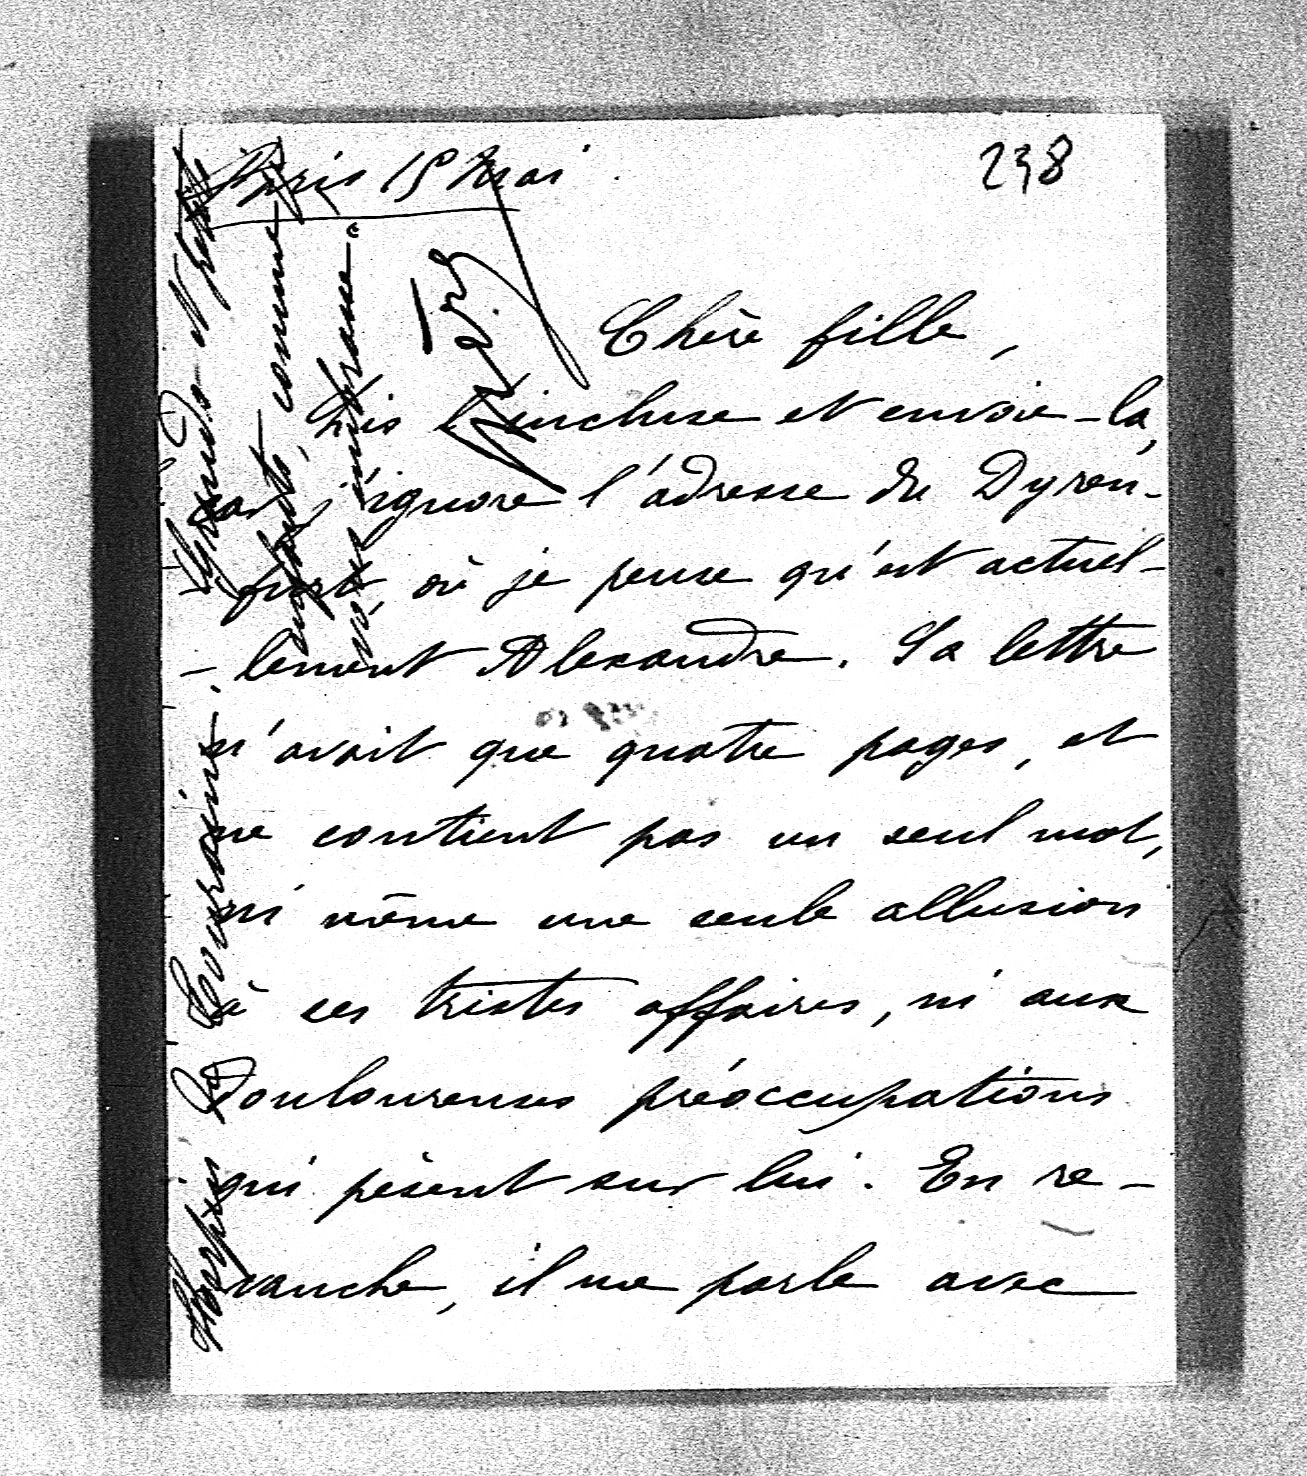 Paris 15 Mai.
238
Chère fille,
Lis l'incluse et envoie-la,
car j'ignore l'adresse du Dyrén-
furt, où je pense qu'est actuel-
-lement Alexandre. Sa lettre
n'avait que quatre pages, et
ne contient pas un seul mot,
ni même une seule allusion
à ces tristes affaires, ni aux
douloureuses préoccupations
qui pèsent sur lui. En re-
vanche, il me parle avec
de Touraine. Grands et petits
enfants, comme
vous embrasse.